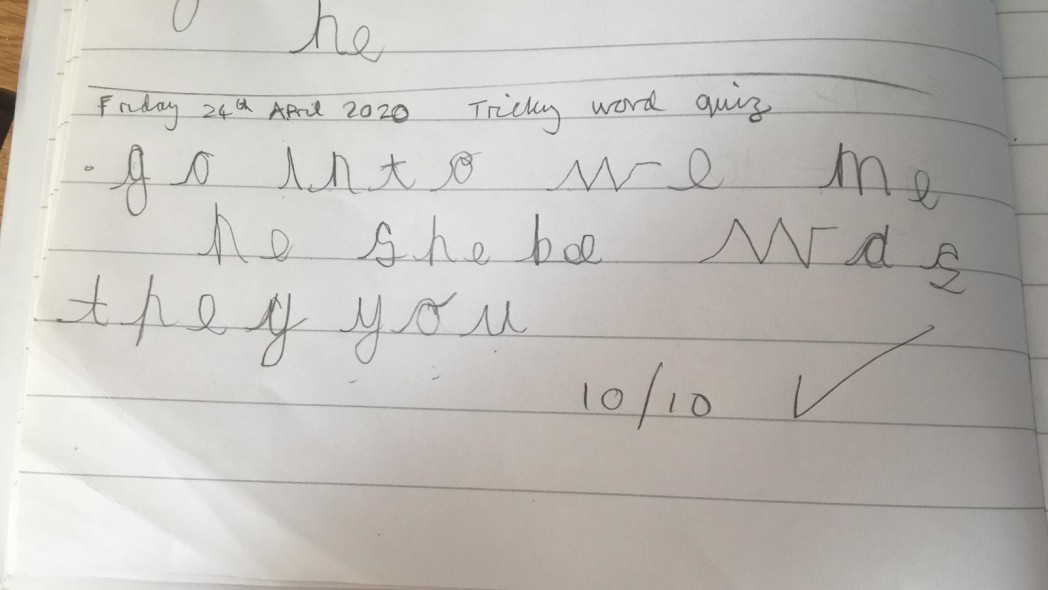 he
Friday 24th April 2020 Tricky word quiz
go into we me
he she be was
they you
10/10 ✓